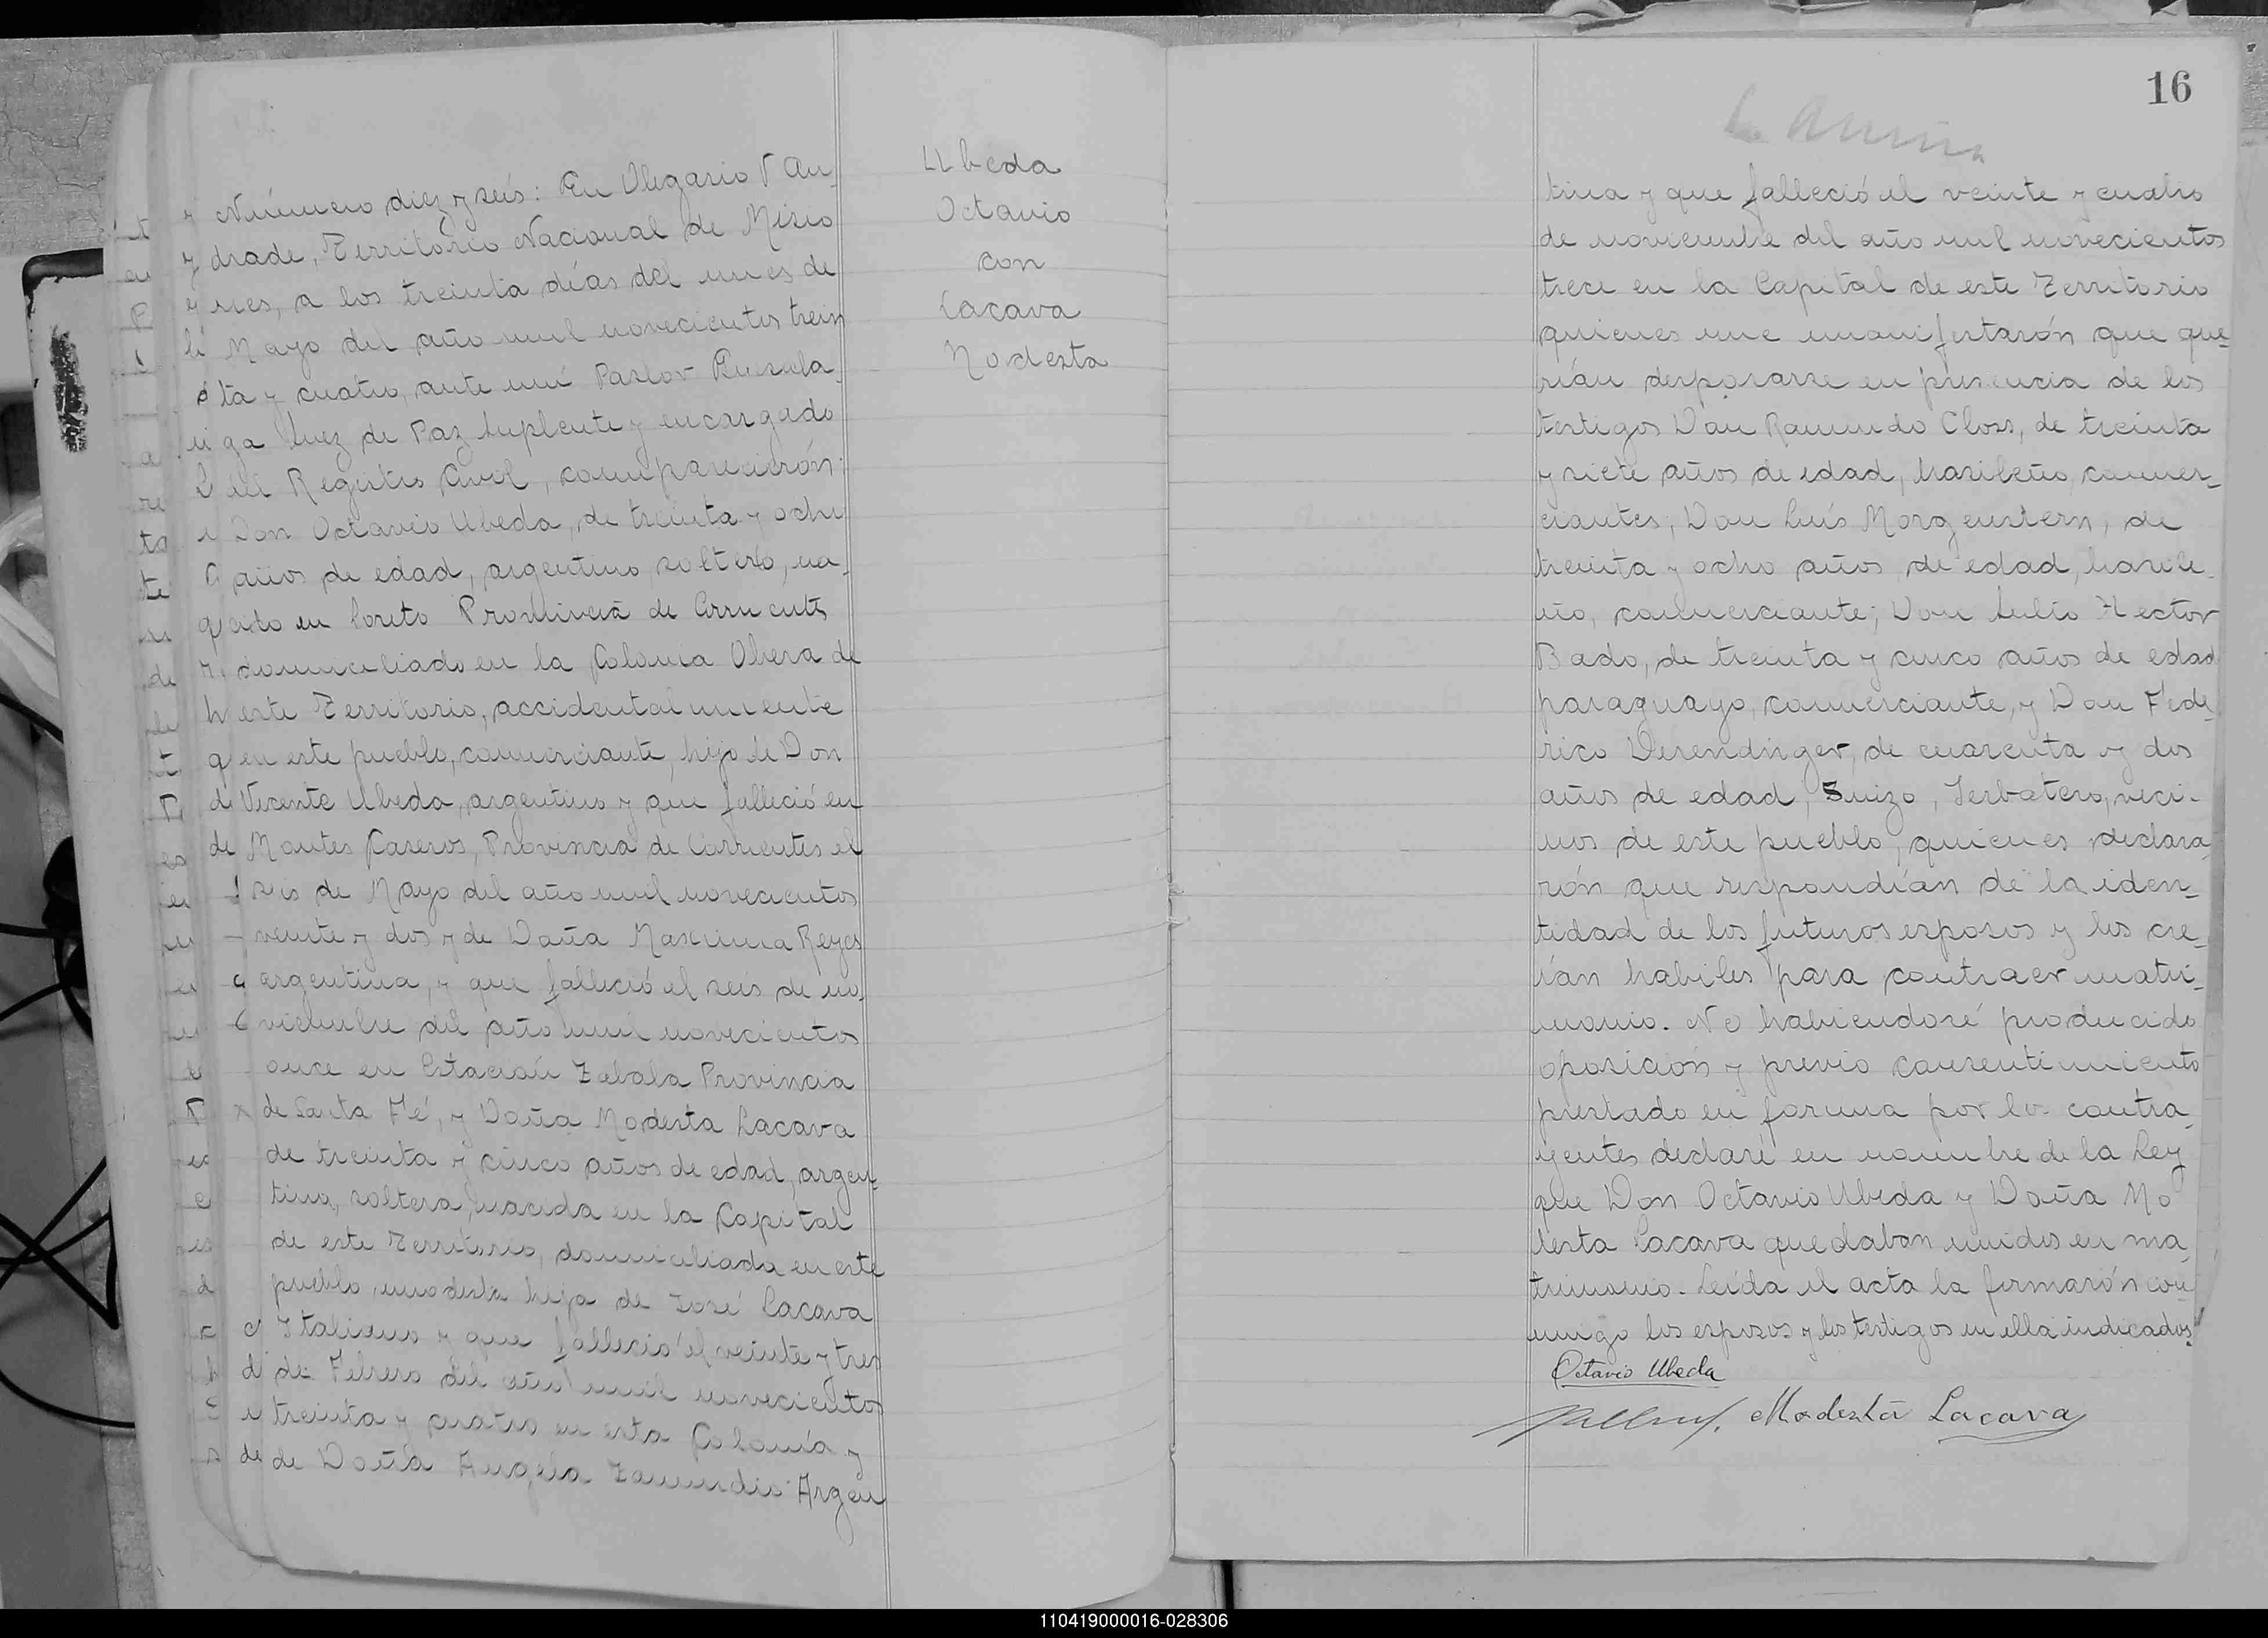 Número diez y seis: En Olegario V An-
drade, Territorio Nacional de Misio
nes, a los treinta días del mes de
Mayo del año mil novecientos trein
ta y cuatro, ante mí Pastor
ga Juez de Paz Suplente y encargado
del Registro Civil, comparecierón:
Don Octavio Ubeda, de treinta y ocho
años de edad, argentino, soltero, na-
cido en Loreto Provincia de Corrientes
domiciliado en la Colonia Obera de
este Territorio, accidentalmente
en este pueblo, comerciante, hijo de Don
Vicente Ubeda, argentino y que falleció en
Montes Caseros, Provincia de Corrientes el
seis de Mayo del año mil novecientos
veinte y dos y de Doña Maxima Reyes
argentina, y que falleció el seis de no-
viembre del año mil novecientos
once en Estación Zabala Provincia
de Santa Fé, y Doña Modesta Lacava
de treinta y cinco años de edad, argen-
tina, soltera, nacida en la Capital
de este Territorio, domiciliada en este
pueblo, modesta hija de José Lacava
Italiano y que falleció el veinte y tres
de Febrero del año mil novecientos
treinta y cuatro en esta Colonia y
de Doña Angela Argen
Ubeda
Octavio
con
Lacava
Modesta
16
tina y que falleció el veinte y cuatro
de noviembre del año mil novecientos
trece en la Capital de este Territorio
quienes me manifestarón que que-
rían desposarse en presencia de los
testigos Don Raimundo Closs, de treinta
y siete años de edad, brasileño, comer-
ciantes; Don Luís Morgenstern, de
treinta y ocho años de edad, brasile-
ño, comerciante; Don Julio Hector
Bado, de treinta y cinco años de edad
paraguayo, comerciante, y Don Fede-
rico Derendinger, de cuarenta y dos
años de edad, Suizo, Yerbatero, veci-
nos de este pueblo, quienes declara
rón que respondían de la iden-
tidad de los futuros esposos y los cre-
ían habiles para contraer matri-
monio. No habiendosé producido
oposición y previo consentimiento
prestado en forma por los contra-
yentes declaré en nombre de la Ley
que Don Octavio Ubeda y Doña Mo
desta Lacava quedaban unidos en ma
trimonio. Leída el acta la firmarón con
migo los esposos y los testigos en ella indicados.
Octavio Ubeda
Modesta Lacava
110419000016-028306